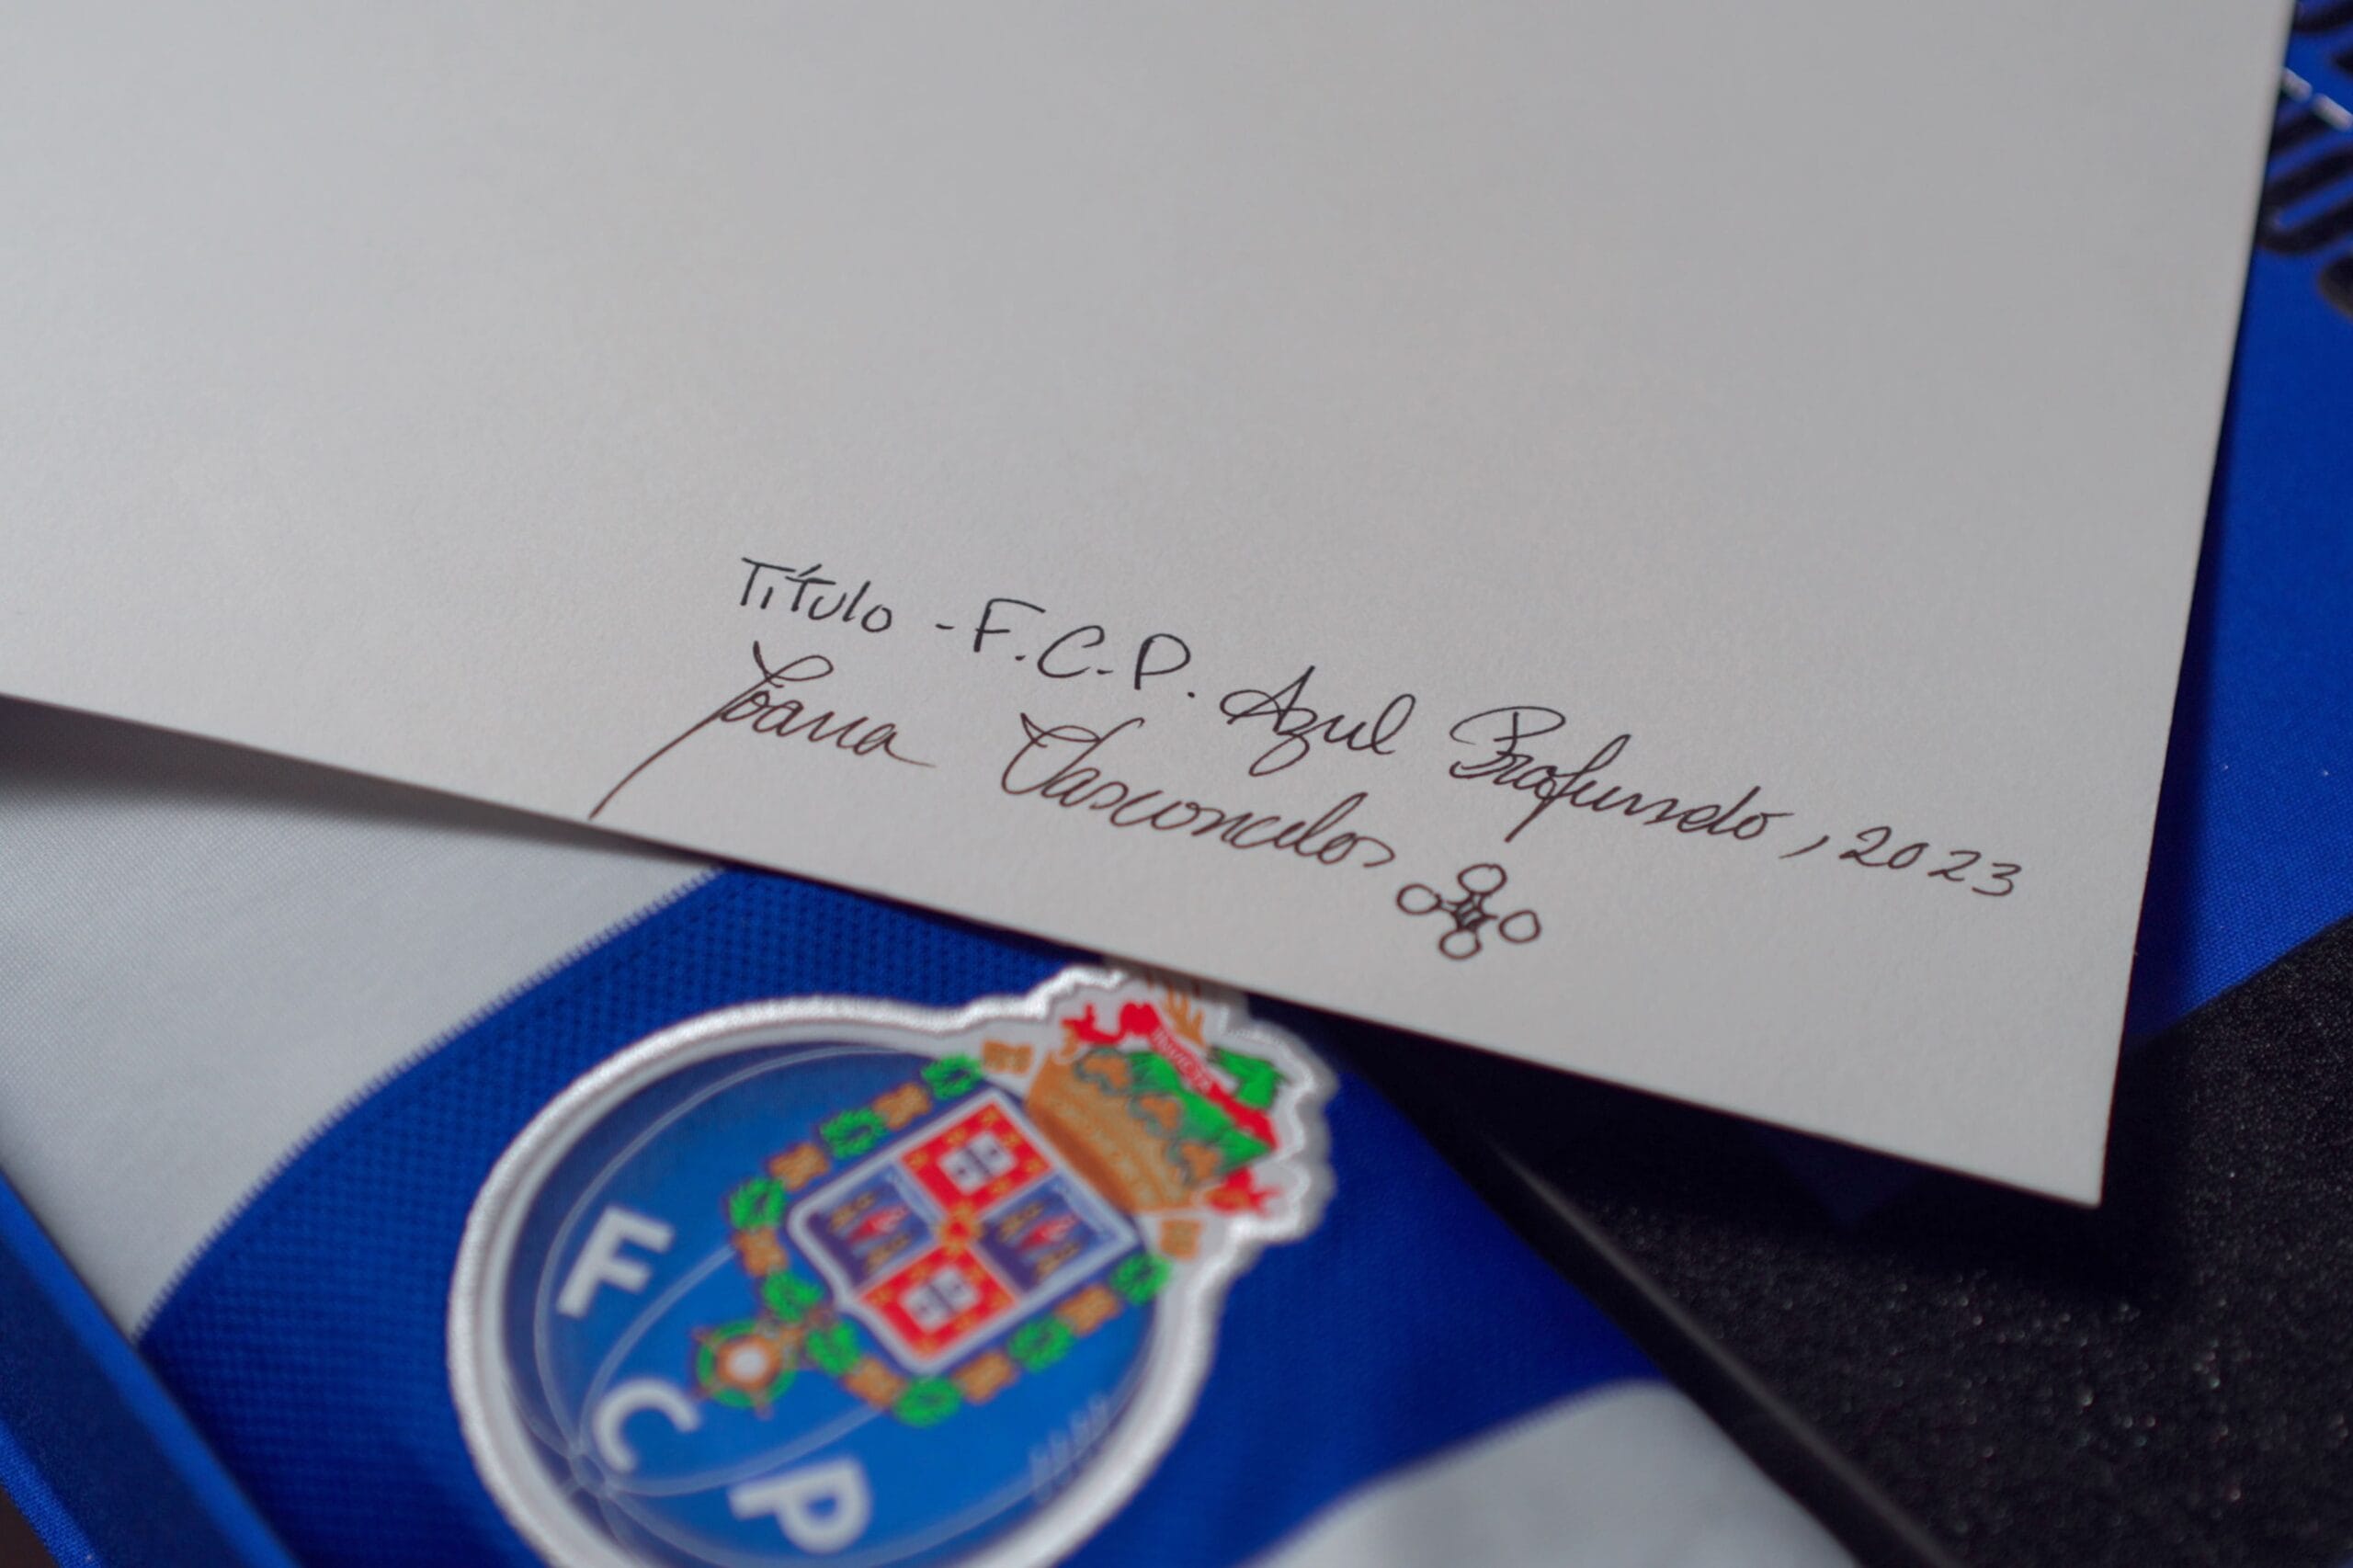 Título - F.C.P. Azul Profundo, 2023
Joana Vasconcelos
F
C
P